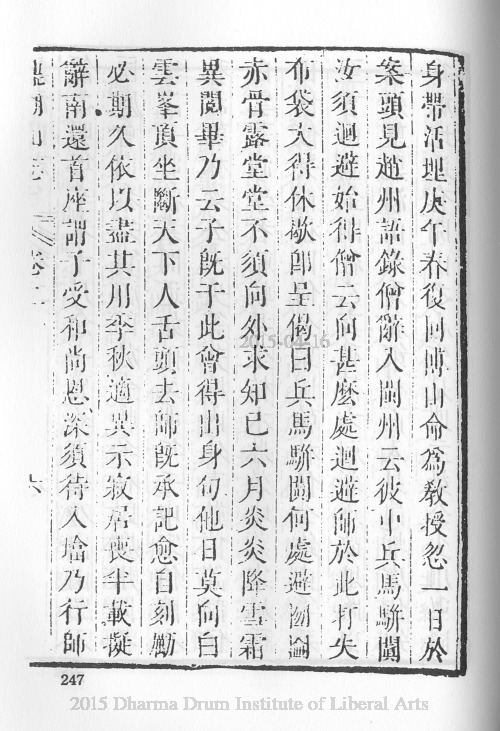 身帶活埋庚午春復回博山命為教授忽一日於
案頭見趙州語錄僧辭入閩州云彼中兵馬駢闐
汝須迴避始得僧云向甚麼處迴避師於此打失
布袋大得休歇即呈偈曰兵馬駢闐何處避
赤骨露堂堂不須向外求知己六月炎炎降雪霜
異閱畢乃云子既于此會得出身句他日莫向白
雲峯頂坐斷天下人舌頭去師既承記愈自刻勵
必期久依以盡其用季秋適異示寂居喪半載擬
辭南還首座謂子受和尚恩深須待入塔乃行師
卷二
六
247
2015-04-16
2015 Dharma Drum Institute of Liberal Arts